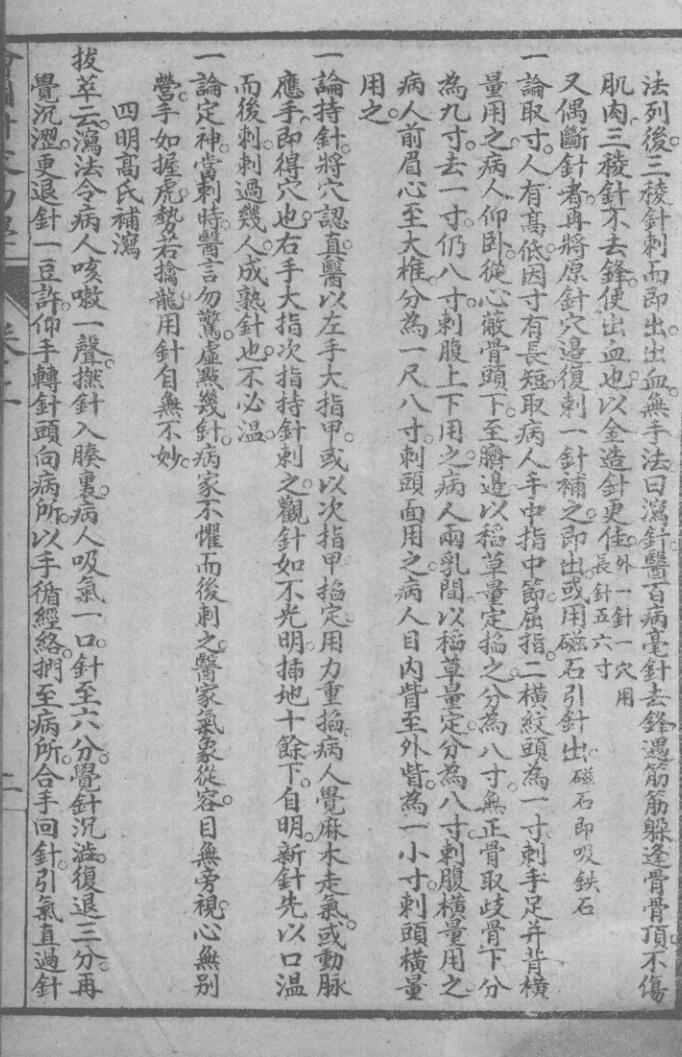 法列後三稜針刺而即出出血無手法曰瀉針醫百病毫針去鋒遇筋筋躲逢骨骨頂不傷
肌肉三稜針不去鋒使出血也以金造針更佳外一針一穴用長針五六寸
又偶斷針者再將原針穴邊復刺一針補之即出或用磁石引針出磁石即吸鉄石
一論取寸人有高低因寸有長短取病人手中指中節屈指二橫紋頭為一寸刺手足并背橫
量用之病人仰卧從心蔽骨頭下至臍邊以稻草量定搯之分為八寸無正骨取歧骨下分
為九寸去一寸仍八寸刺腹上下用之病人兩乳間以稻草量定分為八寸刺腹橫量用之
病人前眉心至大椎分為一尺八寸刺頭面用之病人目內眥至外眥為一小寸刺頭橫量
用之
一論持針將穴認直醫以左手大指甲或以次指甲搯定用力重搯病人覺麻木走氣或動脉
應手即得穴也右手大指次指持針刺之觀針如不光明揷地十餘下自明新針先以口溫
而後刺刺過幾人成熟針也不必溫
一論定神當刺時醫言勿驚虛點幾針病家不懼而後刺之醫家氣象從容目無旁視心無别
營手如握虎勢若擒龍用針自無不妙
四明高氏補瀉
拔萃云瀉法令病人咳嗽一聲撚針入腠裏病人吸氣一口針至六分覺針沉澁復退三分再
覺沉澀更退針一豆許仰手轉針頭向病所以手循經絡捫至病所合手回針引氣直過針